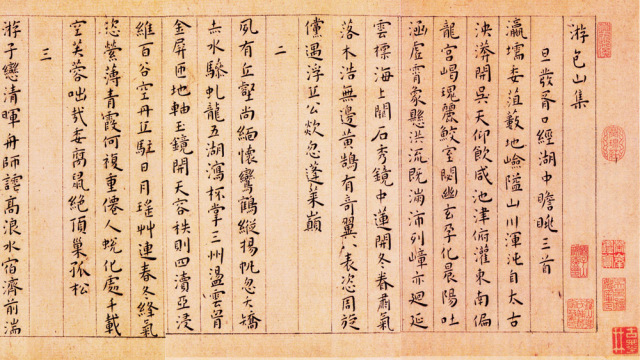 游包山集
旦發胥口經湖中瞻眺三首
瀛壖委菹藪地嶮隘山川渾沌自太古
泱漭開吳天仰飲咸池津俯灌東南偏
龍宮嵑瑰麗鮫室閟幽玄孕化晨陽吐
涵虛霄象懸洪流既滿沛列嶂亦廻延
雲標海上闕石秀鏡中蓮開冬春肅氣
落木浩無邊黃鵠有奇翼八表恣周旋
儻遇浮丘公欻忽蓬萊巔
二
夙有丘壑尚緬懷鸞鶴緱揚帆忽夭矯
赤水驂虬龍五湖瀉杯掌三州溫雲胷
金屏匝地軸玉鏡開天容秩則四瀆亞浸
維百谷空丹丘駐日月瑤艸連春冬絳氣
恣縈薄青霞何複重僊人蛻化處千載
空芙蓉咄哉委腐鼠絕頂巢孤松
三
游子戀清暉舟師謔高浪水宿濟前湍